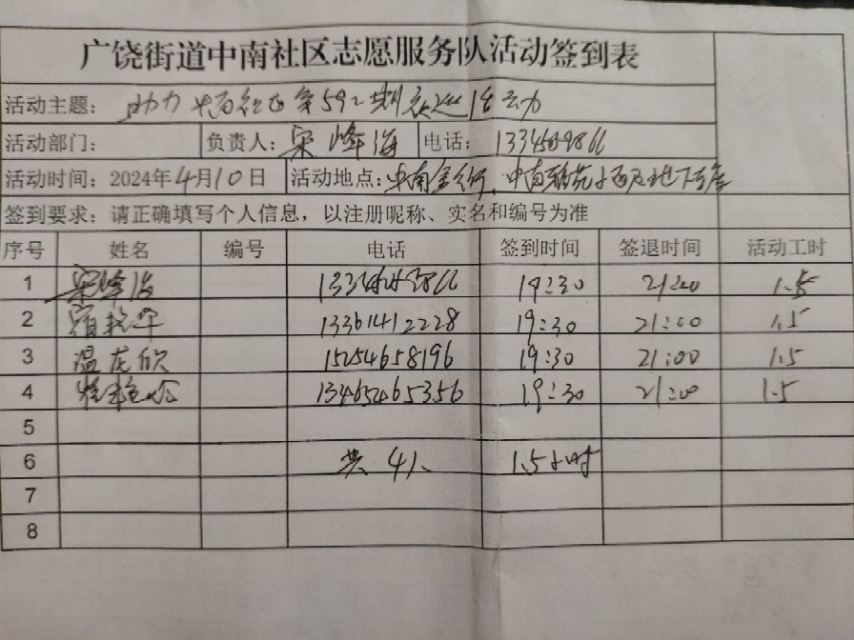 广饶街道中南社区志愿服务队活动签到表
活动主题： 助力 第592期
活动部门： 负责人：宋峰海 电话：
活动时间：2024年4月10日 活动地点：中南
签到要求：请正确填写个人信息，以注册昵称、实名和编号为准
序号 姓名 编号 电话 签到时间 签退时间 活动工时
1 宋峰海 19:30 21:00 1.5
2 13361412228 19:30 21:00 1.5
3 温龙欣 15254658196 19:30 21:00 1.5
4 13465465356 19:30 21:00 1.5
5
6 共 4人 1.5小时
7
8